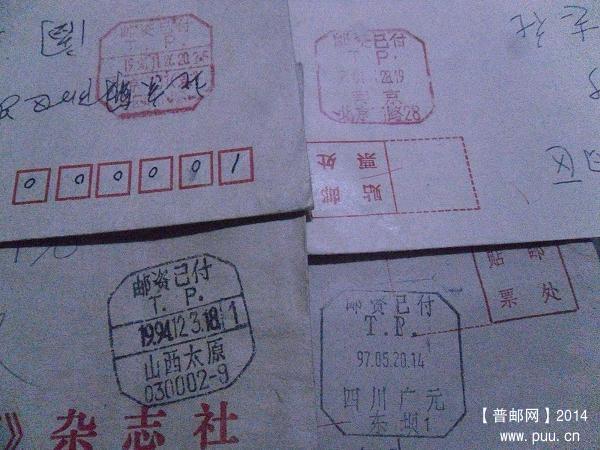 邮资已付
T. P.
北京朝阳区
0 0 0 0 0 1
邮资已付
T. P.
北京
28
贴邮
票处
志社
区
邮资已付
T. P.
1994.12.3.18 1
山西太原
030002-9
》杂志社
贴邮
票处
邮资已付
T. P.
97.05.20.14
四川广元
东坝1
【普邮网】2014
www.puu.cn